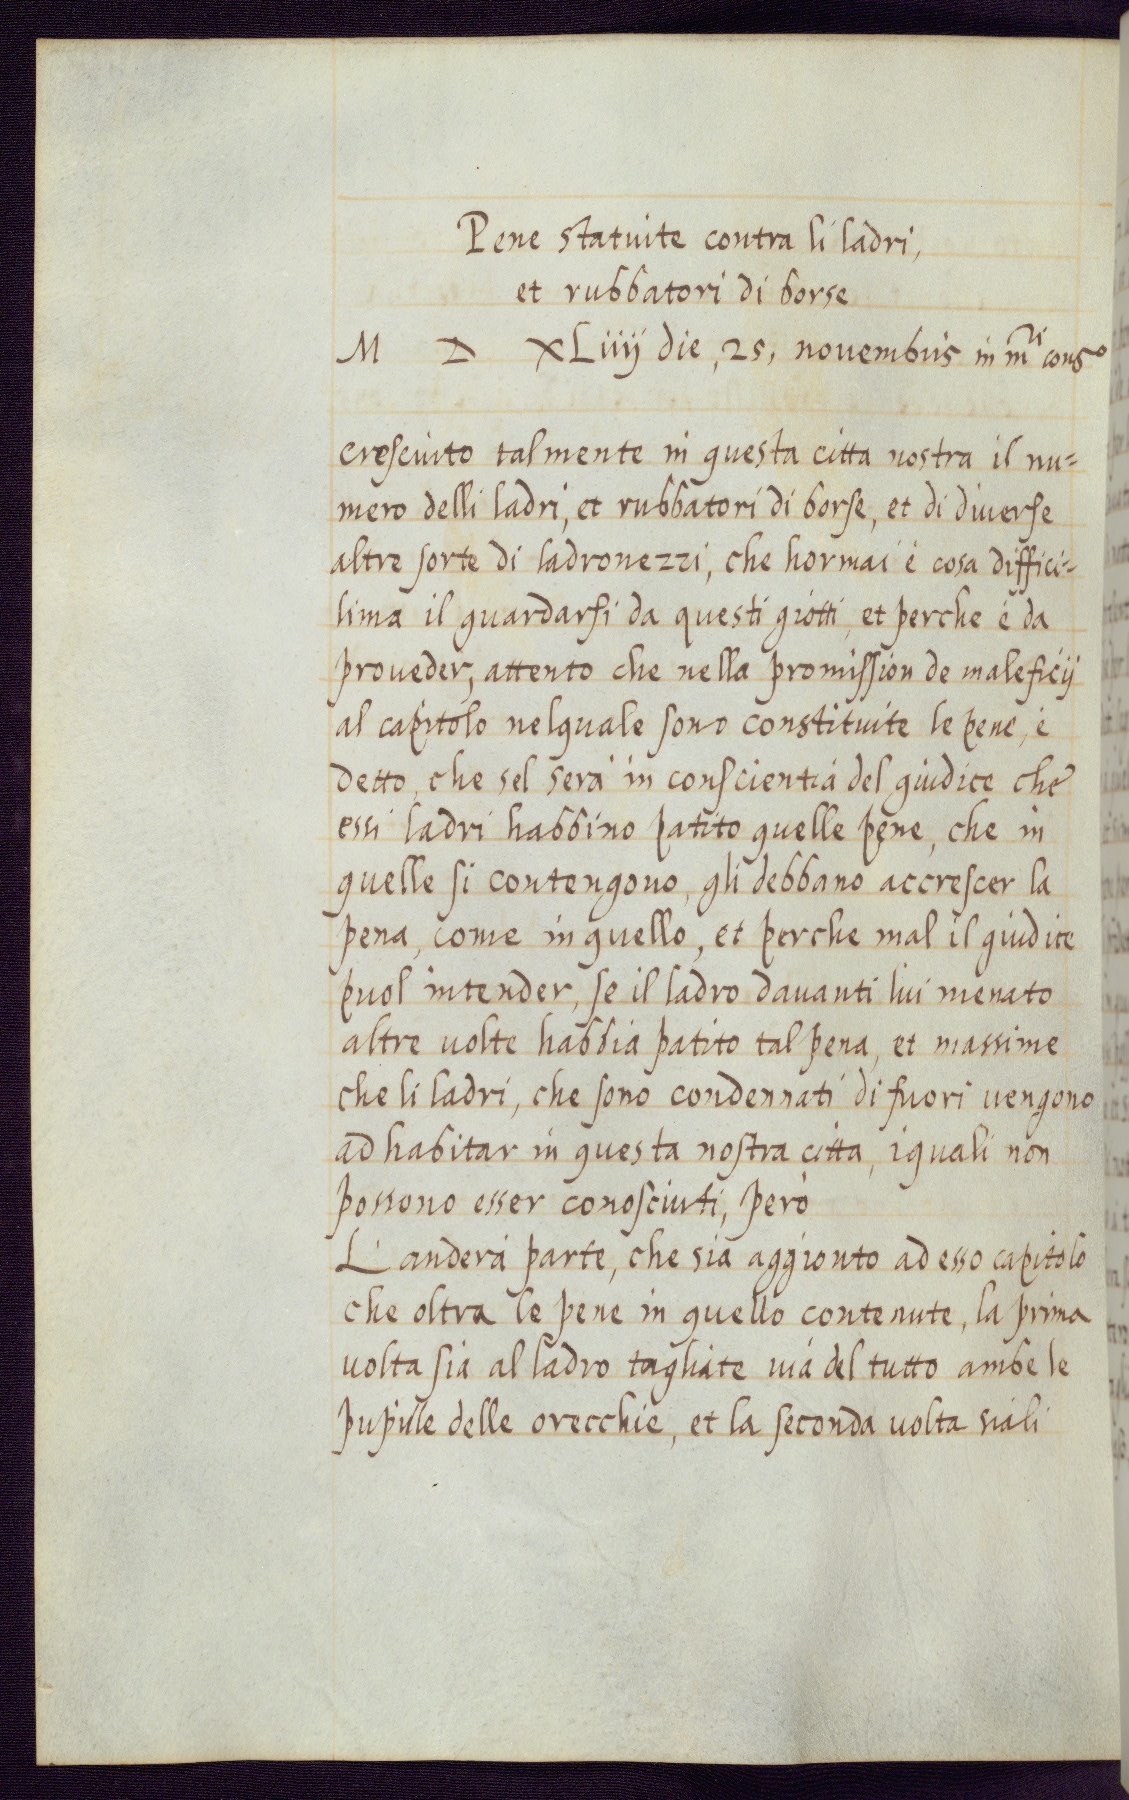 Pene statuite contra li ladri,
et rubbatori di borse
M D XLiiij die, 25, novembris in mri cons°
cresciuto talmente in questa citta nostra il nu-
mero delli ladri, et rubbatori di borse, et di diverse
altre sorte di ladronezzi, che hormai é cosa diffici-
lima il guardarsi da questi giotti, et perche é da
proveder, attento che nella promission de maleficij
al capitolo nelquale sono constituite le pene, é
detto, che sel sera in conscientia del giudice che
essi ladri habbino patito quelle pene, che in
quelle si contengono, gli debbano accrescer la
pena, come in quello, et perche mal il giudice
puol intender, se il ladro davanti lui menato
altre uolte habbia patito tal pena, et massime
che li ladri, che sono condennati di fuori uengono
ad habitar in questa nostra citta, iquali non
possono esser conosciuti, però
L'anderá parte, che sia aggionto ad esso capitolo
che oltra le pene in quello contenute, la prima
uolta sia al ladro tagliate uiá del tutto ambe le
pupule delle orecchie, et la seconda uolta siali